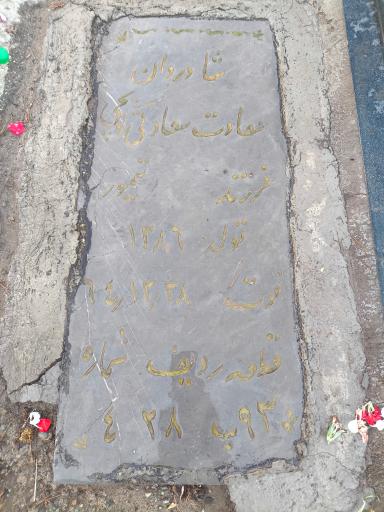 شادروان
سعادت سعادتی
فرزند تیمور
تولد ۱۲۸۶
فوت ۶۴/۱۲/۲۸
قطعه ردیف شماره
۹۳ب ۲۸ ۴